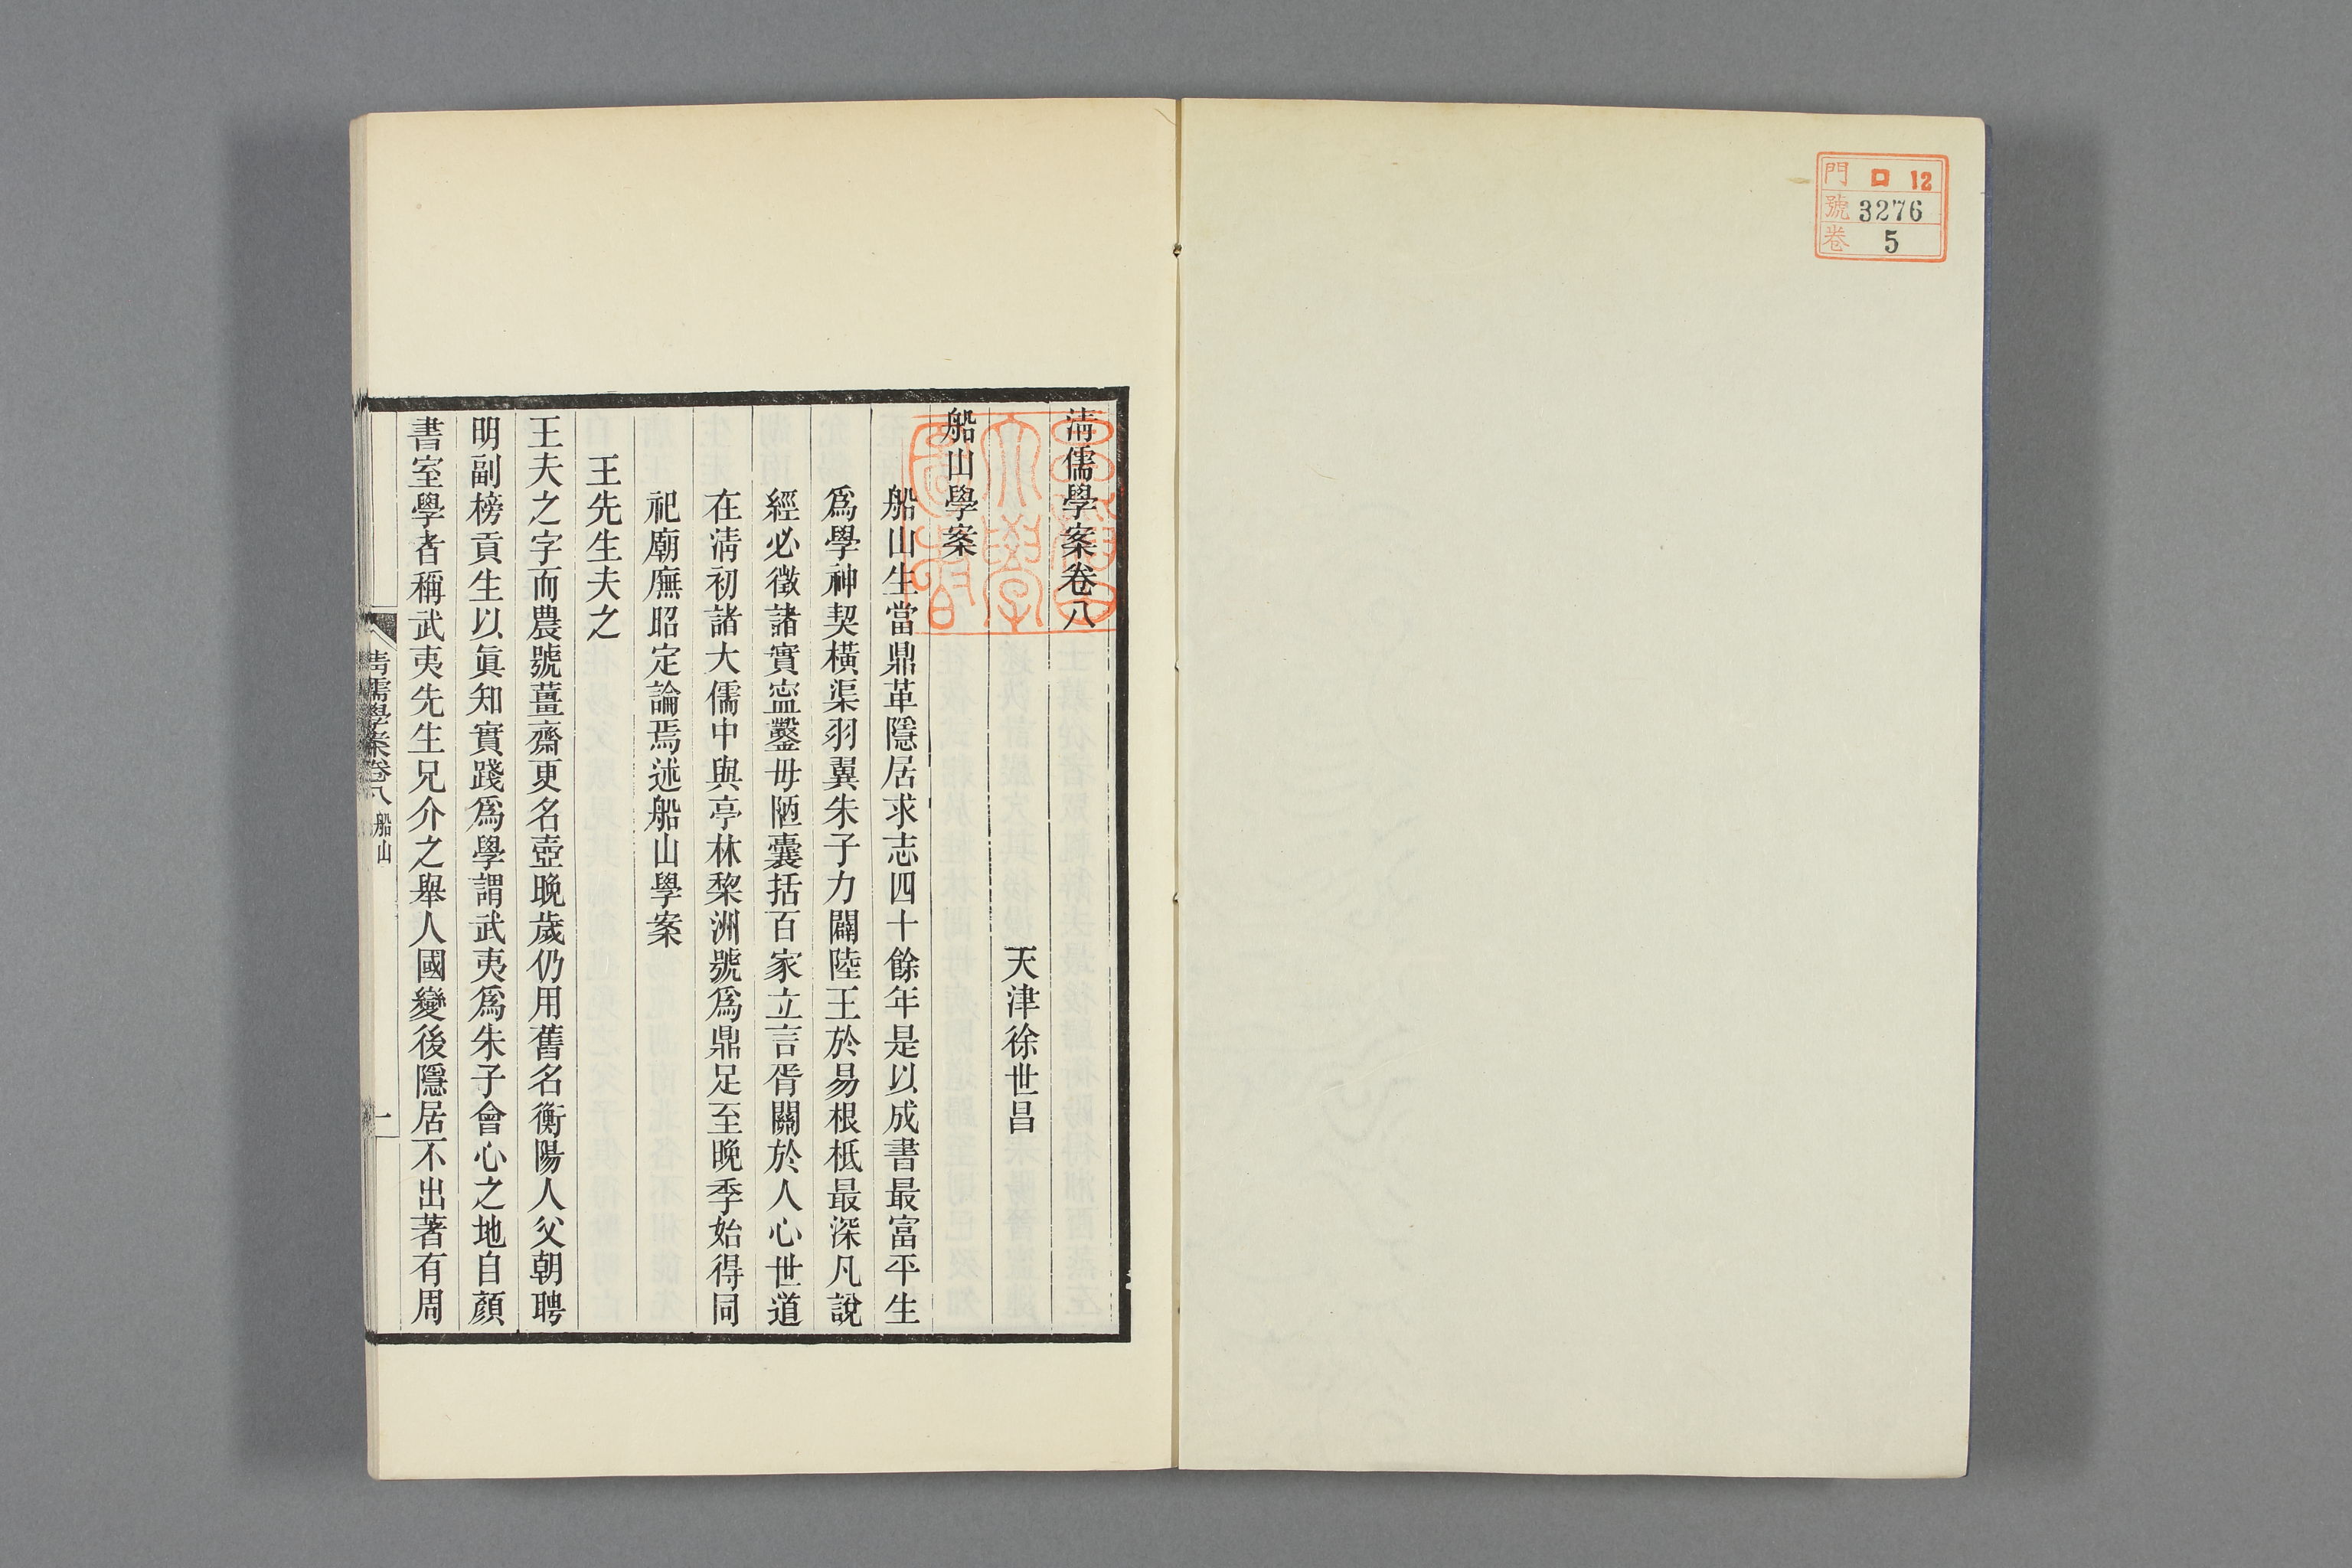 門 ロ 12
號 3276
卷 5
清儒學案卷八
天津徐世昌
船山學案
船山生當鼎革隱居求志四十餘年是以成書最富平生
爲學神契橫渠羽翼朱子力闢陸王於易根柢最深凡說
經必徵諸實寍鑿毋陋囊括百家立言胥關於人心世道
在清初諸大儒中與亭林棃洲號爲鼎足至晚季始得同
祀廟廡昭定論焉述船山學案
王先生夫之
王夫之字而農號薑齋更名壺晚歲仍用舊名衡陽人父朝聘
明副榜貢生以眞知實踐爲學謂武夷爲朱子會心之地自顏
書室學者稱武夷先生兄介之舉人國變後隱居不出著有周
清儒學案卷八 船山 一